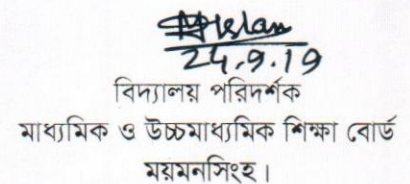 24.9.19
বিদ্যালয় পরিদর্শক
মাধ্যমিক ও উচ্চমাধ্যমিক শিক্ষা বোর্ড
ময়মনসিংহ।